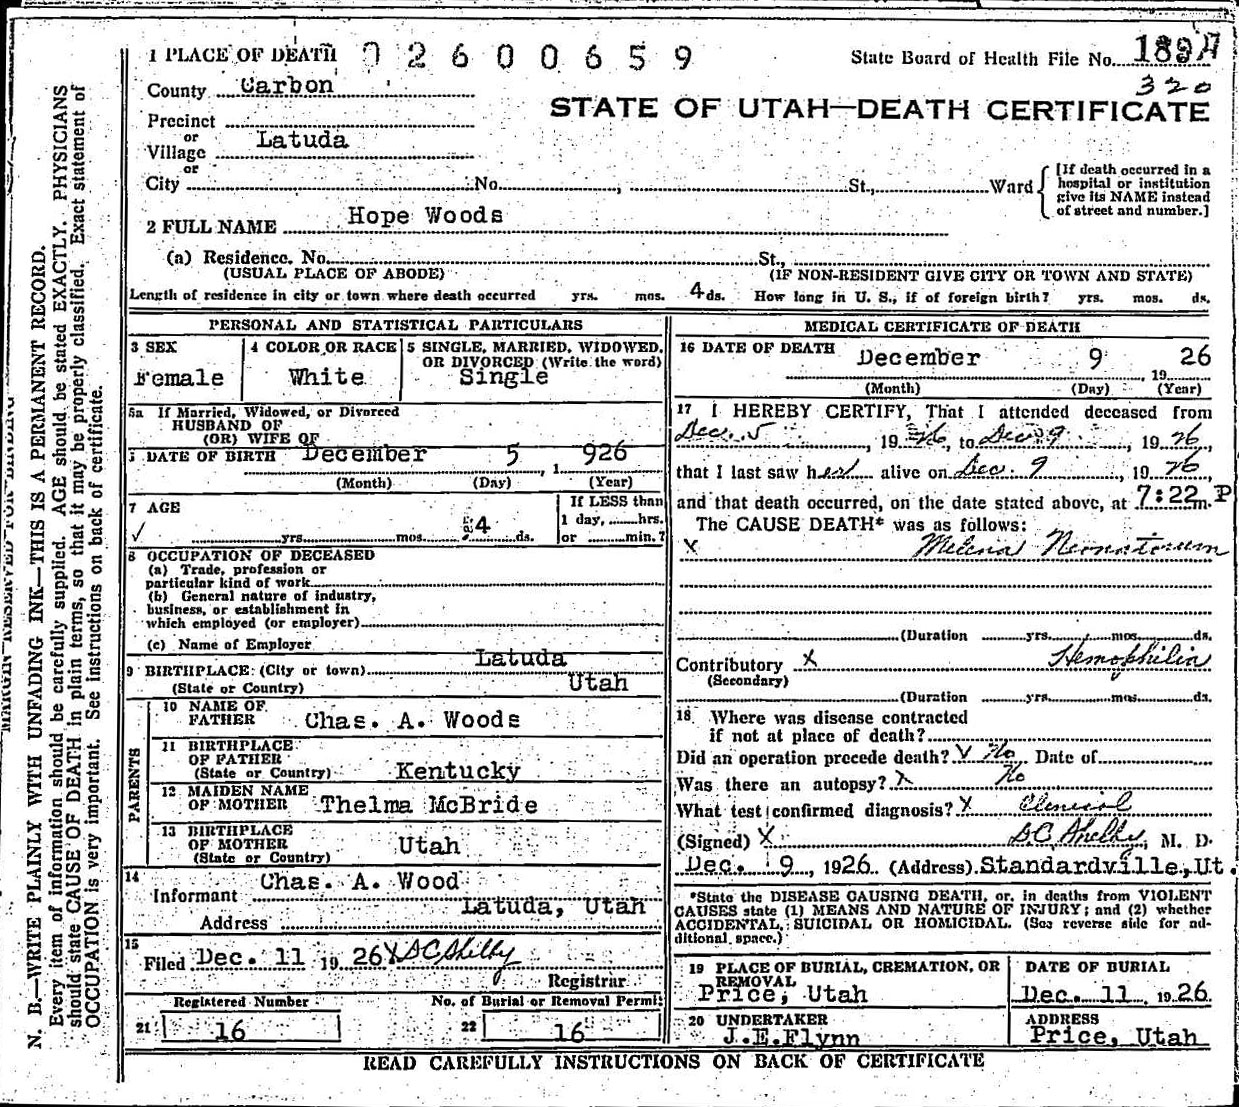 1 PLACE OF DEATH 02600659
State Board of Health File No. 189A
320
County Carbon
STATE OF UTAH—DEATH CERTIFICATE
Precinct
or
Village Latuda
or
City No. , St., Ward
[If death occurred in a
hospital or institution
give its NAME instead
of street and number.]
2 FULL NAME Hope Woods
(a) Residence. No. St.,
(USUAL PLACE OF ABODE) (IF NON-RESIDENT GIVE CITY OR TOWN AND STATE)
Length of residence in city or town where death occurred yrs. mos. 4 ds. How long in U. S., if of foreign birth? yrs. mos. ds.
PERSONAL AND STATISTICAL PARTICULARS
3 SEX
Female
4 COLOR OR RACE
White
5 SINGLE, MARRIED, WIDOWED,
OR DIVORCED (Write the word)
Single
5a If Married, Widowed, or Divorced
HUSBAND OF
(OR) WIFE OF
DATE OF BIRTH December 5, 1926
(Month) (Day) (Year)
7 AGE
yrs. mos. 4 ds.
If LESS than
1 day, hrs.
or min.?
8 OCCUPATION OF DECEASED
(a) Trade, profession or
particular kind of work
(b) General nature of industry,
business, or establishment in
which employed (or employer)
(c) Name of Employer
9 BIRTHPLACE (City or town) Latuda
(State or Country) Utah
PARENTS
10 NAME OF
FATHER Chas. A. Woods
11 BIRTHPLACE
OF FATHER
(State or Country) Kentucky
12 MAIDEN NAME
OF MOTHER Thelma McBride
13 BIRTHPLACE
OF MOTHER
(State or Country) Utah
14
Informant Chas. A. Wood
Address Latuda, Utah
15
Filed Dec. 11 1926 X D C Shelby
Registrar
Registered Number
21 16
No. of Burial or Removal Permit
22 16
MEDICAL CERTIFICATE OF DEATH
16 DATE OF DEATH December 9, 1926
(Month) (Day) (Year)
17 I HEREBY CERTIFY, That I attended deceased from
Dec. 5, 1926, to Dec 9, 1926,
that I last saw her alive on Dec. 9, 1926
and that death occurred, on the date stated above, at 7:22 P m.
The CAUSE DEATH* was as follows:
X Melena Neonatorum
(Duration yrs. mos. ds.
Contributory X Hemophilia
(Secondary)
(Duration yrs. mos. ds.
18 Where was disease contracted
if not at place of death?
Did an operation precede death? No Date of
Was there an autopsy? X No
What test confirmed diagnosis? X Clinical
(Signed) X D.C. Shelby, M. D.
Dec. 9, 1926. (Address) Standardville, Ut.
*State the DISEASE CAUSING DEATH, or, in deaths from VIOLENT
CAUSES state (1) MEANS AND NATURE OF INJURY; and (2) whether
ACCIDENTAL, SUICIDAL OR HOMICIDAL. (See reverse side for ad-
ditional space.)
19 PLACE OF BURIAL, CREMATION, OR
REMOVAL
Price, Utah
DATE OF BURIAL
Dec. 11, 1926.
20 UNDERTAKER
J.E.Flynn
ADDRESS
Price, Utah
READ CAREFULLY INSTRUCTIONS ON BACK OF CERTIFICATE
MARGIN RESERVED FOR BINDING
N. B.—WRITE PLAINLY WITH UNFADING INK—THIS IS A PERMANENT RECORD.
Every item of information should be carefully supplied. AGE should be stated EXACTLY. PHYSICIANS
should state CAUSE OF DEATH in plain terms, so that it may be properly classified. Exact statement of
OCCUPATION is very important. See instructions on back of certificate.